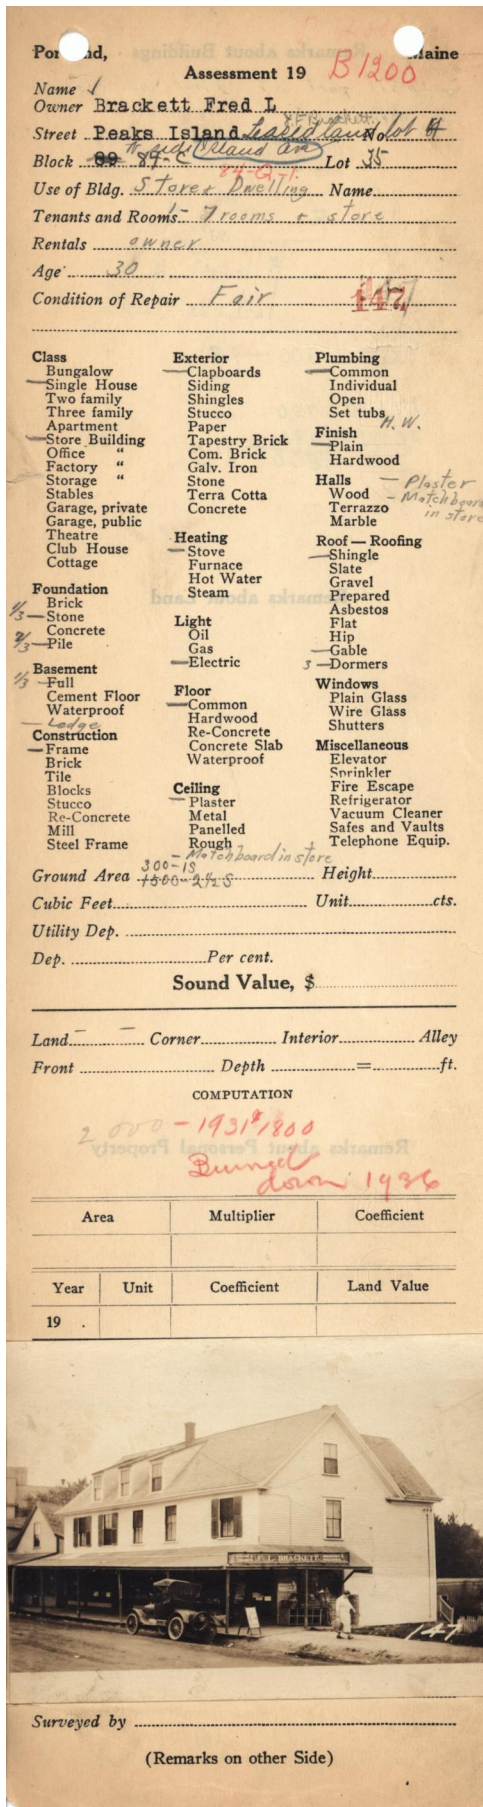 Portland, Maine
Assessment 19 B1200
Name
Owner Brackett Fred L
Street Peaks Island Leased land No. lot 4
Island Ave
Block 89 84-C Lot 35
84-Q-1
Use of Bldg. Store & Dwelling Name
Tenants and Rooms 1- 7 rooms & store
Rentals owner
Age 30
Condition of Repair Fair 147
Class
Bungalow
Single House
Two family
Three family
Apartment
Store Building
Office "
Factory "
Storage "
Stables
Garage, private
Garage, public
Theatre
Club House
Cottage
Foundation
Brick
1/3 Stone
Concrete
2/3 Pile
Basement
1/3 Full
Cement Floor
Waterproof
Ledge
Construction
Frame
Brick
Tile
Blocks
Stucco
Re-Concrete
Mill
Steel Frame
Exterior
Clapboards
Siding
Shingles
Stucco
Paper
Tapestry Brick
Com. Brick
Galv. Iron
Stone
Terra Cotta
Concrete
Heating
Stove
Furnace
Hot Water
Steam
Light
Oil
Gas
Electric
Floor
Common
Hardwood
Re-Concrete
Concrete Slab
Waterproof
Ceiling
Plaster
Metal
Panelled
Rough
- Matchboard in store
Plumbing
Common
Individual
Open
Set tubs
H. W.
Finish
Plain
Hardwood
Halls - Plaster
Wood - Matchboard
Terrazzo in store
Marble
Roof — Roofing
Shingle
Slate
Gravel
Prepared
Asbestos
Flat
Hip
Gable
3 Dormers
Windows
Plain Glass
Wire Glass
Shutters
Miscellaneous
Elevator
Sprinkler
Fire Escape
Refrigerator
Vacuum Cleaner
Safes and Vaults
Telephone Equip.
300-1S
Ground Area 1500-2½S Height
Cubic Feet Unit cts.
Utility Dep.
Dep. Per cent.
Sound Value, $
Land Corner Interior Alley
Front Depth = ft.
COMPUTATION
2000 - 1931 $1800
Burned
down 1936
Area Multiplier Coefficient
Year Unit Coefficient Land Value
19 .
F. L. BRACKETT
147
Surveyed by
(Remarks on other Side)